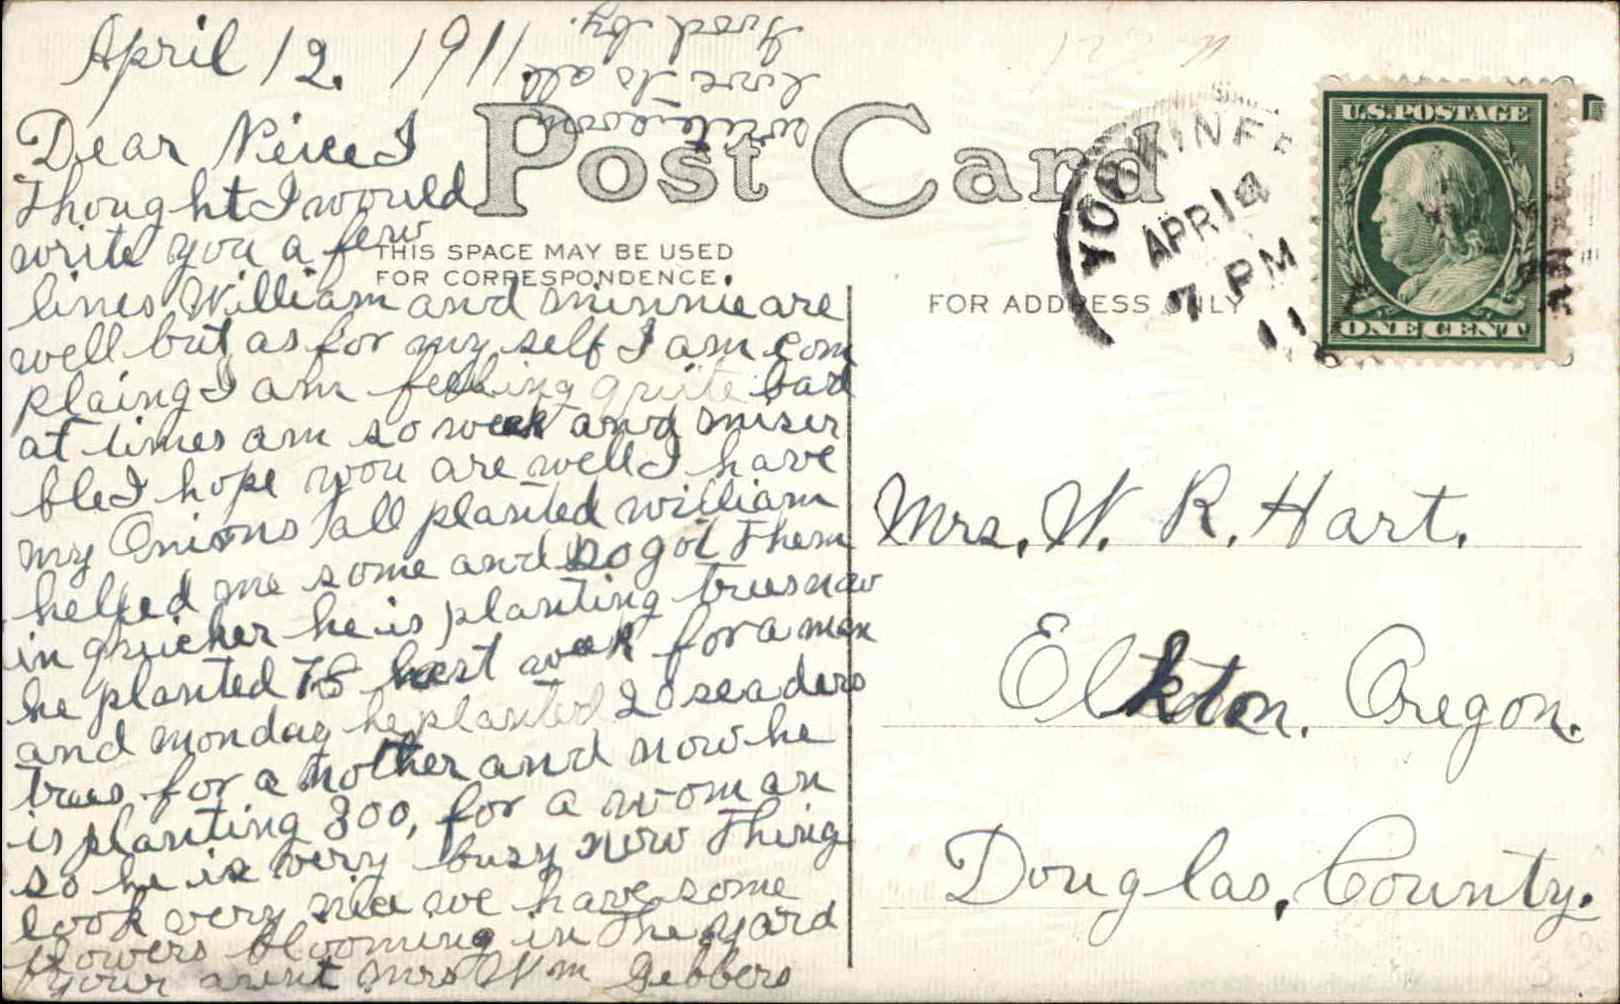 April 12. 1911.
Dear Niece I
Thought I would
write you a few
lines William and Minnie are
well but as for my self I am com
plaing I am feeling quite bad
at times am so week and miser
ble I hope you are well I have
my Onions all planted william
helped me some and so got them
in quicher he is planting trees now
he planted 75 last week for a man
and monday he planted 20 seaders
trees for a nother and now he
is planting 300, for a woman
so he is very busy now Thing
look very nice we have some
flowers blooming in The yard
your aunt Mrs Wm Gebbers
write soon
love to all
good by.
Post Card
THIS SPACE MAY BE USED
FOR CORRESPONDENCE.
FOR ADDRESS ONLY
APR 14
7 PM
11
U.S. POSTAGE
ONE CENT
Mrs. W. R. Hart.
Elkton. Oregon.
Douglas, County.